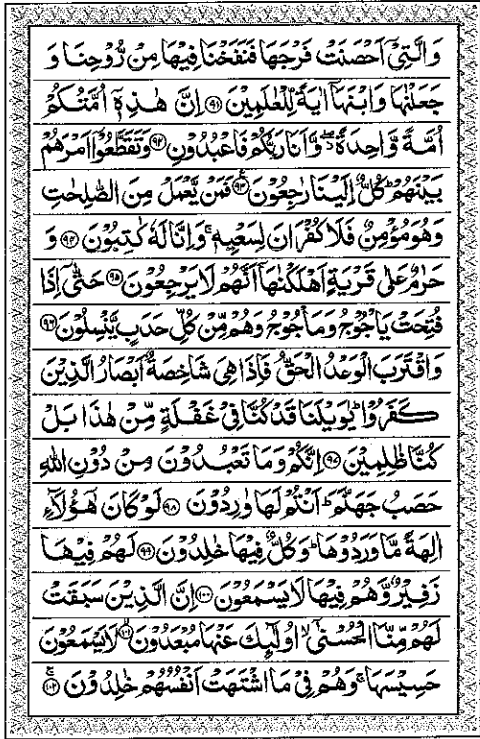 وَالَّتِيْٓ اَحْصَنَتْ فَرْجَهَا فَنَفَخْنَا فِيْهَا مِنْ رُّوْحِنَا وَ
جَعَلْنٰهَا وَابْنَهَآ اٰيَةً لِّلْعٰلَمِيْنَ ﴿۹۱﴾ اِنَّ هٰذِهٖٓ اُمَّتُكُمْ
اُمَّةً وَّاحِدَةً ۖ وَّاَنَا رَبُّكُمْ فَاعْبُدُوْنِ ﴿۹۲﴾ وَتَقَطَّعُوْٓا اَمْرَهُمْ
بَيْنَهُمْ ؕ كُلٌّ اِلَيْنَا رٰجِعُوْنَ ﴿۹۳﴾ فَمَنْ يَّعْمَلْ مِنَ الصّٰلِحٰتِ
وَهُوَ مُؤْمِنٌ فَلَا كُفْرَانَ لِسَعْيِهٖ ۚ وَاِنَّا لَهٗ كٰتِبُوْنَ ﴿۹۴﴾ وَ
حَرٰمٌ عَلٰى قَرْيَةٍ اَهْلَكْنٰهَآ اَنَّهُمْ لَا يَرْجِعُوْنَ ﴿۹۵﴾ حَتّٰىٓ اِذَا
فُتِحَتْ يَاْجُوْجُ وَمَاْجُوْجُ وَهُمْ مِّنْ كُلِّ حَدَبٍ يَّنْسِلُوْنَ ﴿۹۶﴾
وَاقْتَرَبَ الْوَعْدُ الْحَقُّ فَاِذَا هِيَ شَاخِصَةٌ اَبْصَارُ الَّذِيْنَ
كَفَرُوْا ؕ يٰوَيْلَنَا قَدْ كُنَّا فِيْ غَفْلَةٍ مِّنْ هٰذَا بَلْ
كُنَّا ظٰلِمِيْنَ ﴿۹۷﴾ اِنَّكُمْ وَمَا تَعْبُدُوْنَ مِنْ دُوْنِ اللّٰهِ
حَصَبُ جَهَنَّمَ ؕ اَنْتُمْ لَهَا وٰرِدُوْنَ ﴿۹۸﴾ لَوْ كَانَ هٰٓؤُلَآءِ
اٰلِهَةً مَّا وَرَدُوْهَا ؕ وَكُلٌّ فِيْهَا خٰلِدُوْنَ ﴿۹۹﴾ لَهُمْ فِيْهَا
زَفِيْرٌ وَّهُمْ فِيْهَا لَا يَسْمَعُوْنَ ﴿۱۰۰﴾ اِنَّ الَّذِيْنَ سَبَقَتْ
لَهُمْ مِّنَّا الْحُسْنٰٓى ۙ اُولٰٓئِكَ عَنْهَا مُبْعَدُوْنَ ﴿۱۰۱﴾ لَا يَسْمَعُوْنَ
حَسِيْسَهَا ۚ وَهُمْ فِيْ مَا اشْتَهَتْ اَنْفُسُهُمْ خٰلِدُوْنَ ﴿۱۰۲﴾